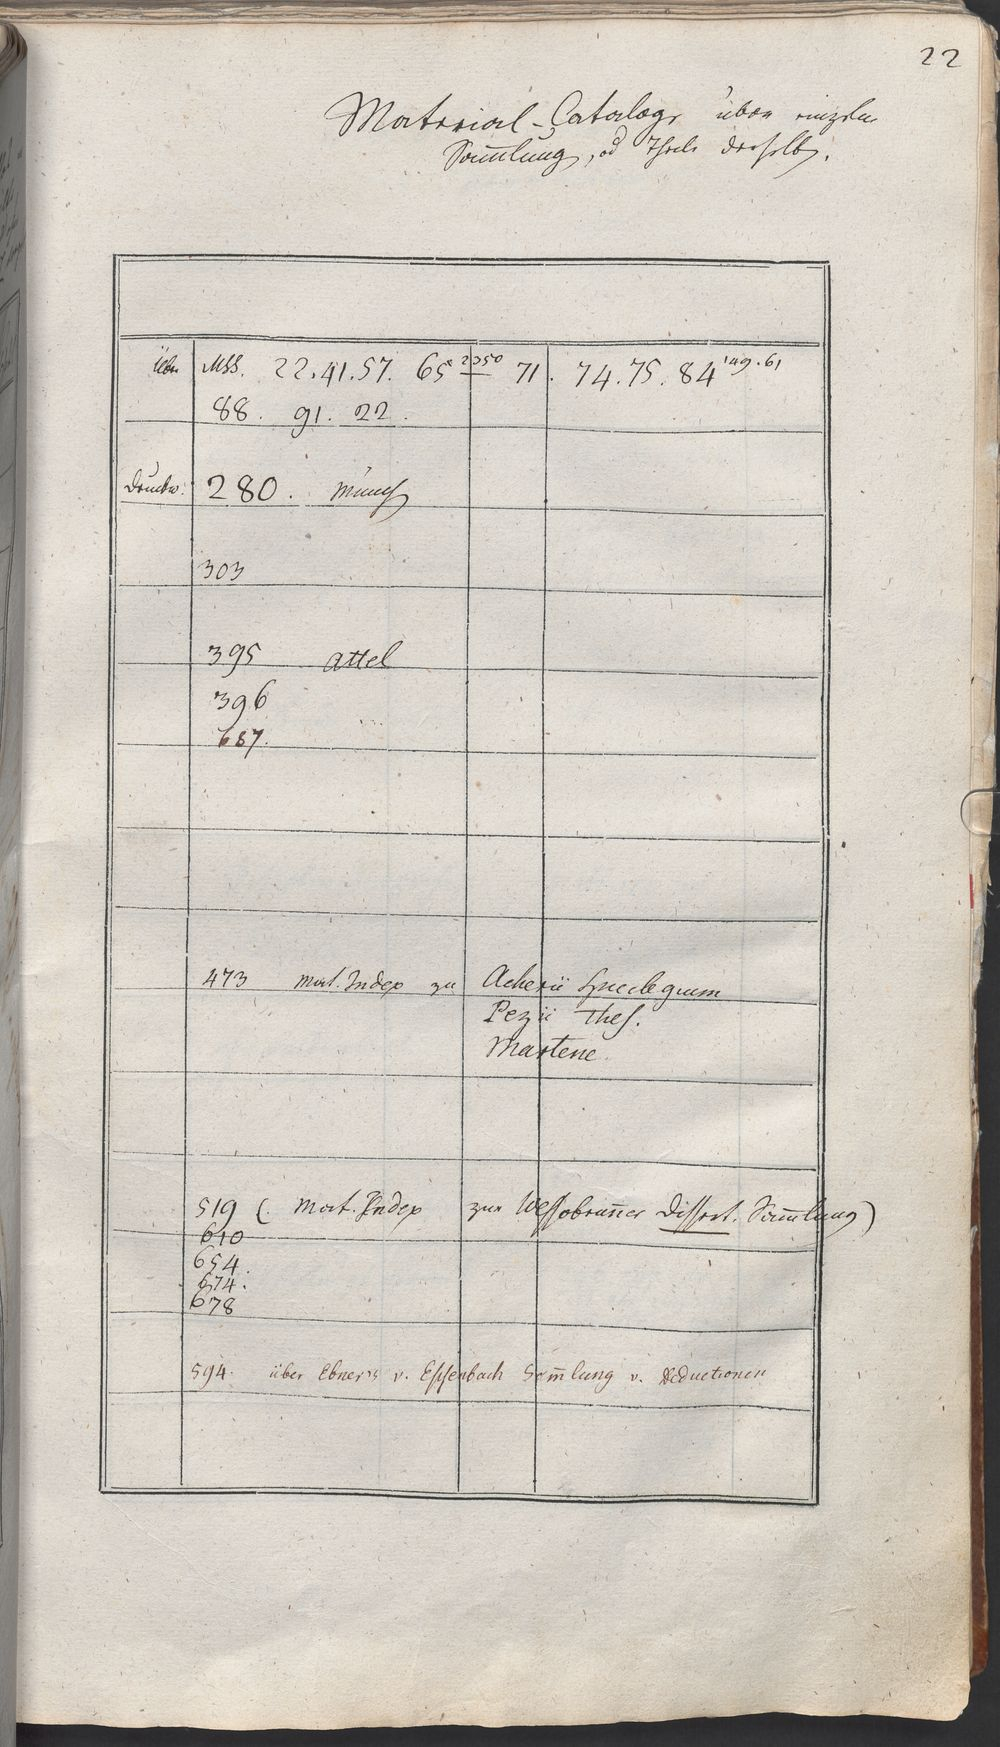 22
Material-Cataloge über einzelne
Sammlungen, od Theile derselben.
über MSS. 22.41.57. 65 2350 71. 74.75.84 149.61
88. 91. 22.
Druckw. 280. Münch
303
395 Attel
396
687.
473 Mat. Index zu Acherii Spicilegium
Pezii Thes.
Martene.
519 (. Mat. Index zur Wessobrunner Dissert. Sammlung)
610
654.
674.
678
594. über Ebners v. Eschenbach Sammlung v. Deductionen